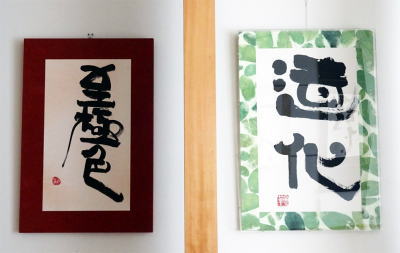 至極色
造化